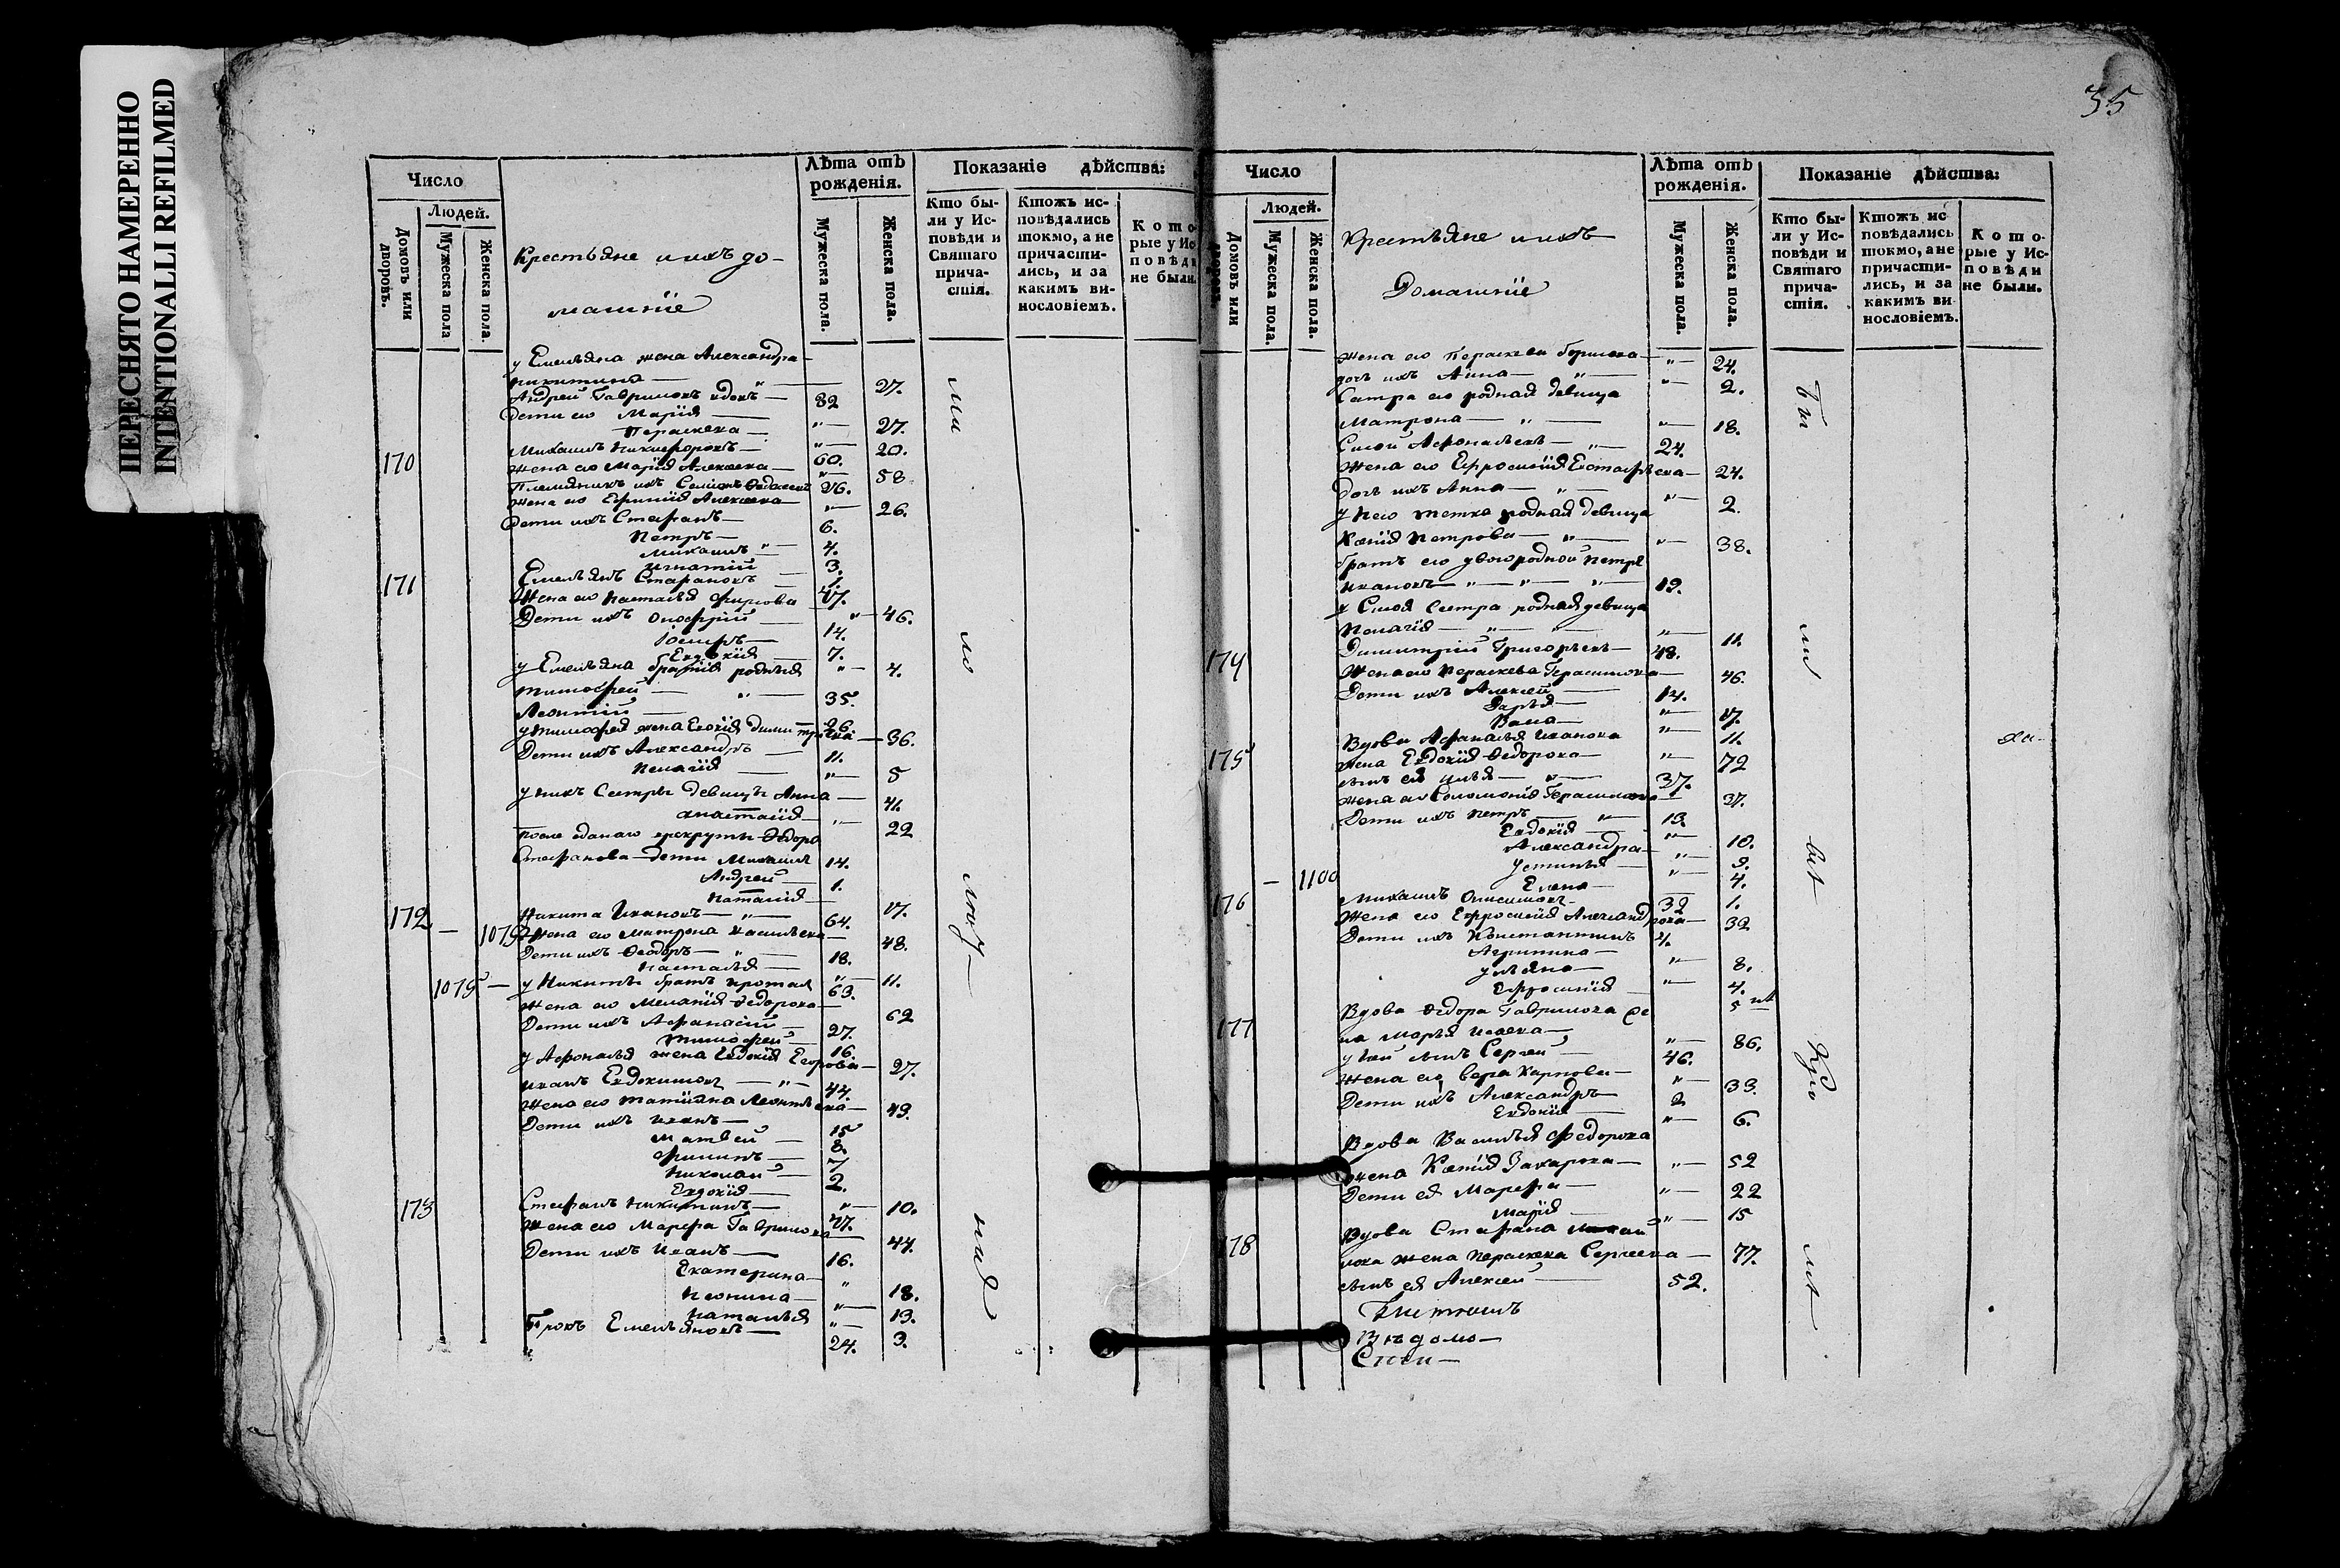 ПЕРЕСНЯТО НАМЕРЕННО
INTENTIONALLI REFILMED
Число
Людей.
Домовъ или дворовъ.
Мужеска пола
Женска пола.
Крестьяне и ихъ до-
машніе
Лѣта отъ рожденія.
Мужеска пола.
Женска пола.
Показаніе дѣйства:
Кто бы-
ли у Ис-
повѣди и
Святаго
прича-
стія.
Ктожъ ис-
повѣдались
токмо, а не
причасти-
лись, и за
какимъ ви-
нословіемъ.
Кото-
рые у Ис
повѣди
не были.
у Емельяна жена Александра
Никитина — " — 27.
Андрей Гавриловъ вдовъ — 82
Дети его Марія — "— 27.
Параскева — "— 20.
170 Михаилъ Никифоровъ — 60.
Жена его Марія Алексеева — "— 58
Племянникъ ихъ Семіонъ 26.
Жена его Алексеева — "— 26.
Дети ихъ Стефанъ — 6.
Петръ — 4.
Михаилъ " — 3.
Игнатій — 1.
171 Емельянъ Стефановъ — 47.
Жена его Наталья Фирсова " — 46.
Дети ихъ Онофрій — 14.
Іосифъ — 7.
Евдокія — " — 4.
у Емельяна братія родныя
Тимофей — " — 35.
Леонтій — 26.
у Тимофея жена Евдокія Димитріева — 36.
Дети ихъ Александръ — 11.
Пелагія — "— 5
у нихъ Сестры девицы Анна — 41.
Анастасія — "— 22
после отданаго в рекруты Федора
Стефанова дети Михаилъ 14.
Андрей — 1.
Наталія — 17.
172 Никита Ивановъ — " — 64.
— 1075 Жена его Матрона Васильева — 48.
Дети ихъ Феодоръ — " — 18.
Наталья — " — 11.
1075 — у Никиты братъ 63.
Жена его Меланія Федорова — 62
Дети ихъ Афанасій — 27.
Тимофей — 16.
у Афонасья жена Евдокія Егорова — 27.
Иванъ Евдокимовъ — " — 44.
Жена его Татіяна Леонтьева — 43.
Дети ихъ Иванъ — 15
Матвей — 8.
Филипъ — 7
Николай — 2.
Евдокія — " — 10.
173 Стефанъ Никитинъ — 47.
Жена его Марфа Гаврилова — 44.
Дети ихъ Иванъ — 16.
Екатерина — " 18.
"— 13.
Наталья "— 3.
Емельяновъ — 24.
35
Число
Людей.
Домовъ или дворовъ.
Мужеска пола.
Женска пола.
Крестьяне и ихъ
Домашніе
Лѣта отъ рожденія.
Мужеска пола.
Женска пола.
Показаніе дѣйства:
Кто бы-
ли у Ис-
повѣди и
Святаго
прича-
стія.
Ктожъ ис
повѣдались
токмо, а не
причасти-
лись, и за
какимъ ви
нословіемъ.
Кото-
рые у Ис-
повѣди
не были.
Жена его Параскева — "— 24.
дочь ихъ Анна — " — "— 2.
Сестра его родная девица
Матрона — " — "— 18.
Афонасьевъ — " — 24.
Жена его Ефросинія Евстафьева — 24.
дочь ихъ Анна — " — "— 2.
у него тетка родная девица
Ксенія Петрова — "— "— 38.
братъ его двоюродной Петръ
Ивановъ — "— "— "— 19.
Сестра родная девица
Пелагія — "— "— "— 11.
174 Димитрій Григорьевъ — 48.
Жена его Параскева Герасимова — 46.
Дети ихъ Алексей — 14.
Дарья — "— 17.
"— 11.
175 Вдова Афанасья Иванова
жена Евдокія Федорова — "— 72
сынъ ея Илья — "— 37.
Жена его Соломонія Герасимова — 37.
Дети ихъ Петръ — "— 13.
Евдокія — "— 10.
Александра — "— 9.
Устинья — "— 4.
— 1100 Елена — 1.
176 Михаилъ Онисимовъ — 32
Жена его Ефросинія Александрова — 32
Дети ихъ Константинъ 4.
Агрипина — "— 8.
Ульяна — "— 4.
Ефросинія — 5
177 Вдова Федора Гаврилова же
на Марья Исаева — "— 86.
у ней сынъ Сергей — 46.
Жена его Вера Карпова — "— 33.
Дети ихъ Александръ — 2
Евдокія — "— 6.
Вдова Василья Федорова
жена Ксенія Захарова — "— 52
Дети ея Марфа — "— 22
Марія — "— 15
178 Вдова Стефана
лова жена Параскева Сергеева — 77.
сынъ ея Алексей — 52.